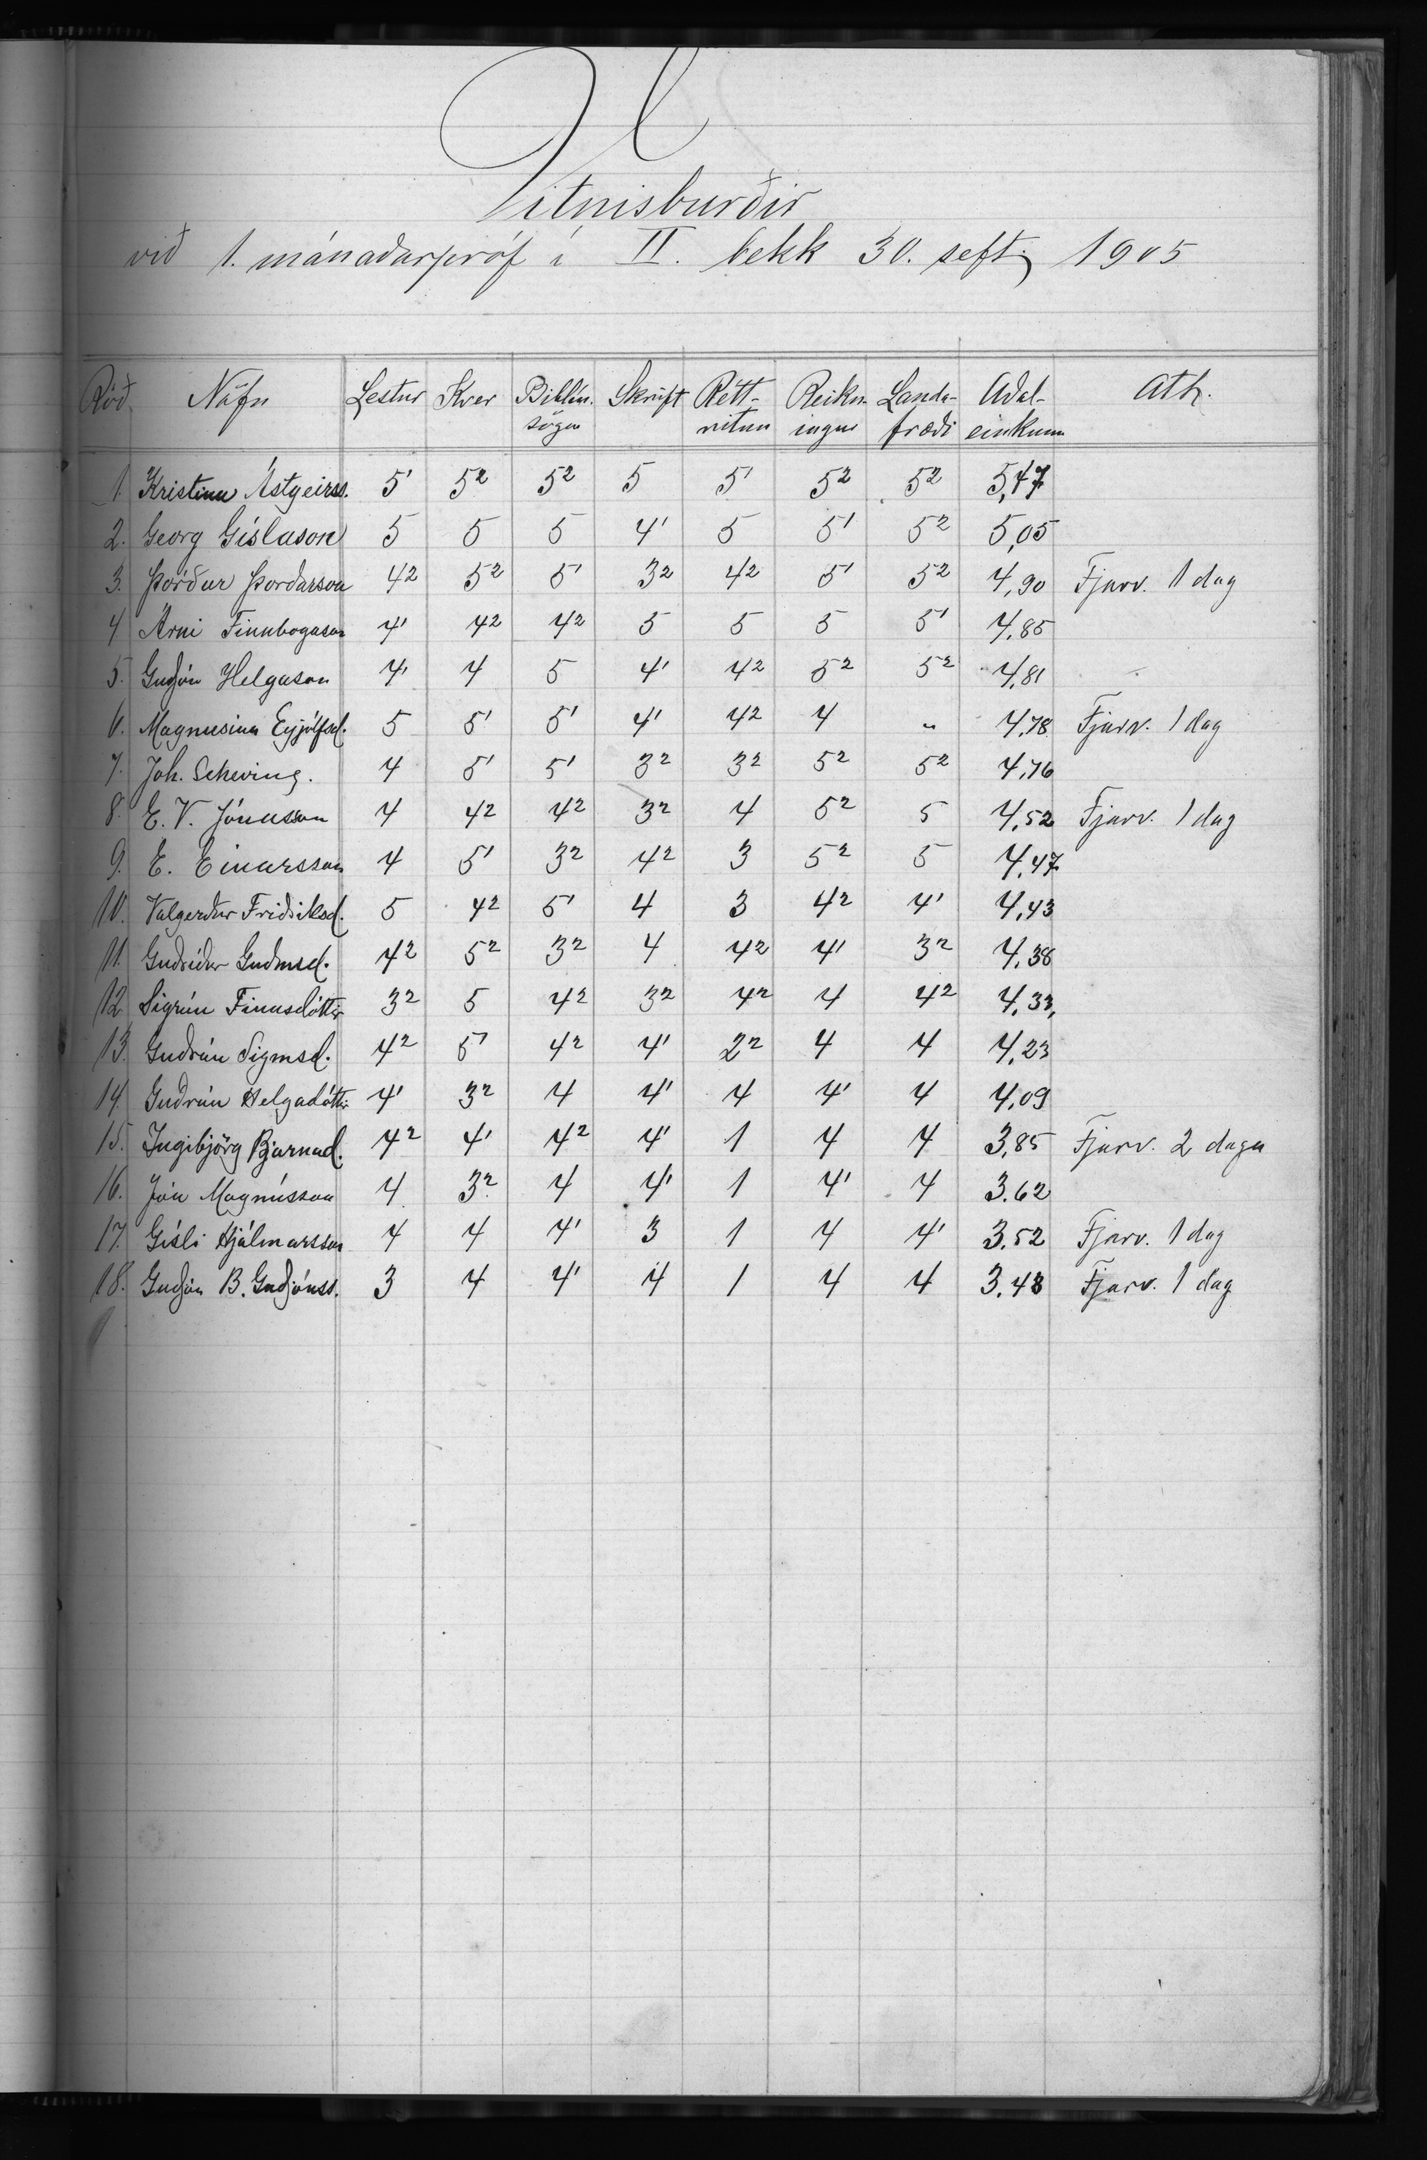 Vitnisburðir
við 1. mánaðarpróf í II. bekk 30. sept. 1905
Röð. Nöfn Lestur Kver Biblíu- sögur Skrift Rétt- ritun Reikn- ingur Landa- fræði Aðal- einkunn Ath.
1. Kristinn Ástgeirss. 5¹ 5² 5² 5 5¹ 5² 5² 5,47
2. Georg Gíslason 5 5 5 4¹ 5 5¹ 5² 5,05
3. Þórður Þorðarson 4² 5² 5¹ 3² 4² 5¹ 5² 4,90 Fjarv. 1 dag
4 Árni Finnbogason 4¹ 4² 4² 5 5 5 5¹ 4,85
5. Guðjón Helgason 4¹ 4 5 4¹ 4² 5² 5² 4,81
6. Magnusína Eyjólfsd. 5 5¹ 5¹ 4¹ 4² 4 " 4,78 Fjarv. 1 dag
7. Joh. Scheving. 4 5¹ 5¹ 3² 3² 5² 5² 4,76
8. E. V. Jónasson 4 4² 4² 3² 4 5² 5 4,52 Fjarv. 1 dag
9. E. Einarsson 4 5¹ 3² 4² 3 5² 5 4,47
10. Valgerður Friðriksd. 5 4² 5¹ 4 3 4² 4¹ 4,43
11. Guðríður Guðmsd. 4² 5² 3² 4 4² 4¹ 3² 4,38
12 Sigrún Finnsdóttir 3² 5 4² 3² 4² 4 4² 4,33,
13. Guðrún Sigmsd. 4² 5¹ 4² 4¹ 2² 4 4 4,23
14. Guðrún Helgadóttir 4¹ 3² 4 4¹ 4 4¹ 4 4,09
15. Ingibjörg Bjarnad. 4² 4¹ 4² 4¹ 1 4 4 3,85 Fjarv. 2 daga
16. Jón Magnússon 4 3² 4 4¹ 1 4¹ 4 3.62
17. Gísli Hjálmarsson 4 4 4¹ 3 1 4 4¹ 3.52 Fjarv. 1 dag
18. Guðjón B. Guðjónss. 3 4 4¹ 4 1 4 4 3.48 Fjarv. 1 dag